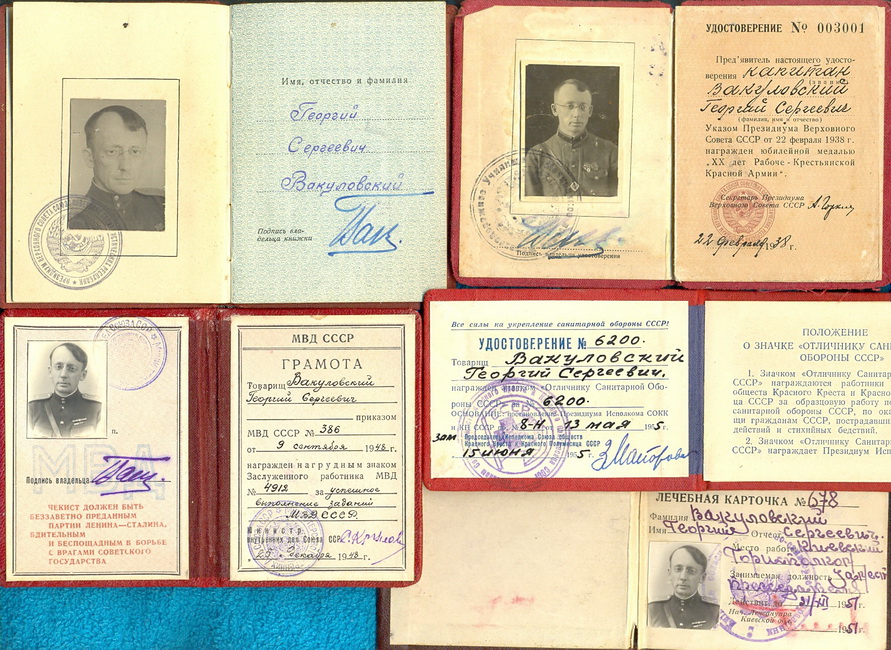 Имя, отчество и фамилия
Георгий
Сергеевич
Вакуловский
Подпись вла-
дельца книжки
УДОСТОВЕРЕНИЕ № 003001
Пред'явитель настоящего удосто-
верения капитан
(звание)
Вакуловский
Георгий Сергеевич
(фамилия, имя и отчество)
Указом Президиума Верховного
Совета СССР от 22 февраля 1938 г.
награжден юбилейной медалью
„XX лет Рабоче-Крестьянской
Красной Армии".
Секретарь Президиума
Верховного Совета СССР А. Горкин
22 февраля 1938 г.
Подпись владельца удостоверения
п.
МВД
Подпись владельца
ЧЕКИСТ ДОЛЖЕН БЫТЬ
БЕЗЗАВЕТНО ПРЕДАННЫМ
ПАРТИИ ЛЕНИНА—СТАЛИНА,
БДИТЕЛЬНЫМ
И БЕСПОЩАДНЫМ В БОРЬБЕ
С ВРАГАМИ СОВЕТСКОГО
ГОСУДАРСТВА
МВД СССР
ГРАМОТА
Товарищ Вакуловский
Георгий Сергеевич
приказом
МВД СССР № 386
от 9 сентября 1948 г.
награжден нагрудным знаком
Заслуженного работника МВД
№ 4912 за успешное
выполнение заданий
МВД СССР.
Министр
внутренних дел Союза ССР С. Круглов
25 декабря 1948 г.
Все силы на укрепление санитарной обороны СССР!
УДОСТОВЕРЕНИЕ № 6200.
Товарищ Вакуловский
Георгий Сергеевич.
награжден „Отличнику Санитарной Обо-
роны СССР" за № 6200.
ОСНОВАНИЕ: постановление Президиума Исполкома СОКК
и КП СССР № 8-Н от 13 мая 1955 г.
Зам. Председателя Исполкома Союза обществ
Красного Креста и Красного Полумесяца СССР
15 июня 1955 г.
ПОЛОЖЕНИЕ
О ЗНАЧКЕ «ОТЛИЧНИКУ САНИ
ОБОРОНЫ СССР»
1. Значком «Отличнику Санитар
СССР» награждаются работники
обществ Красного Креста и Красного
ца СССР за образцовую работу по
санитарной обороны СССР, по ока
щи гражданам СССР, пострадавши
действий и стихийных действий.
2. Значком «Отличнику Санитарн
СССР» награждает Президиум Исп
ЛЕЧЕБНАЯ КАРТОЧКА № 678
Фамилия Вакуловский
Имя Георгий Отчество Сергеевич.
Место работы Киевский
Занимаемая должность
Действит. по 31/XII 1951 г.
Нач. Лечсанупра
Киевской обл.
1951 г.